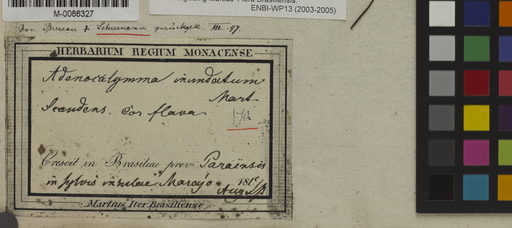 M-0086327
ENBI-WP13 (2003-2005)
Von Bureau & Schumann zurückgek. III. 97.
HERBARIUM REGIUM MONACENSE
Adenocalymma inundatum
Mart.
Scandens. Cor flava
Crescit in Brasiliae prov. Paraënsis
in sylvis insulae Marajo 181
Aug.
Martius Iter Brasiliense